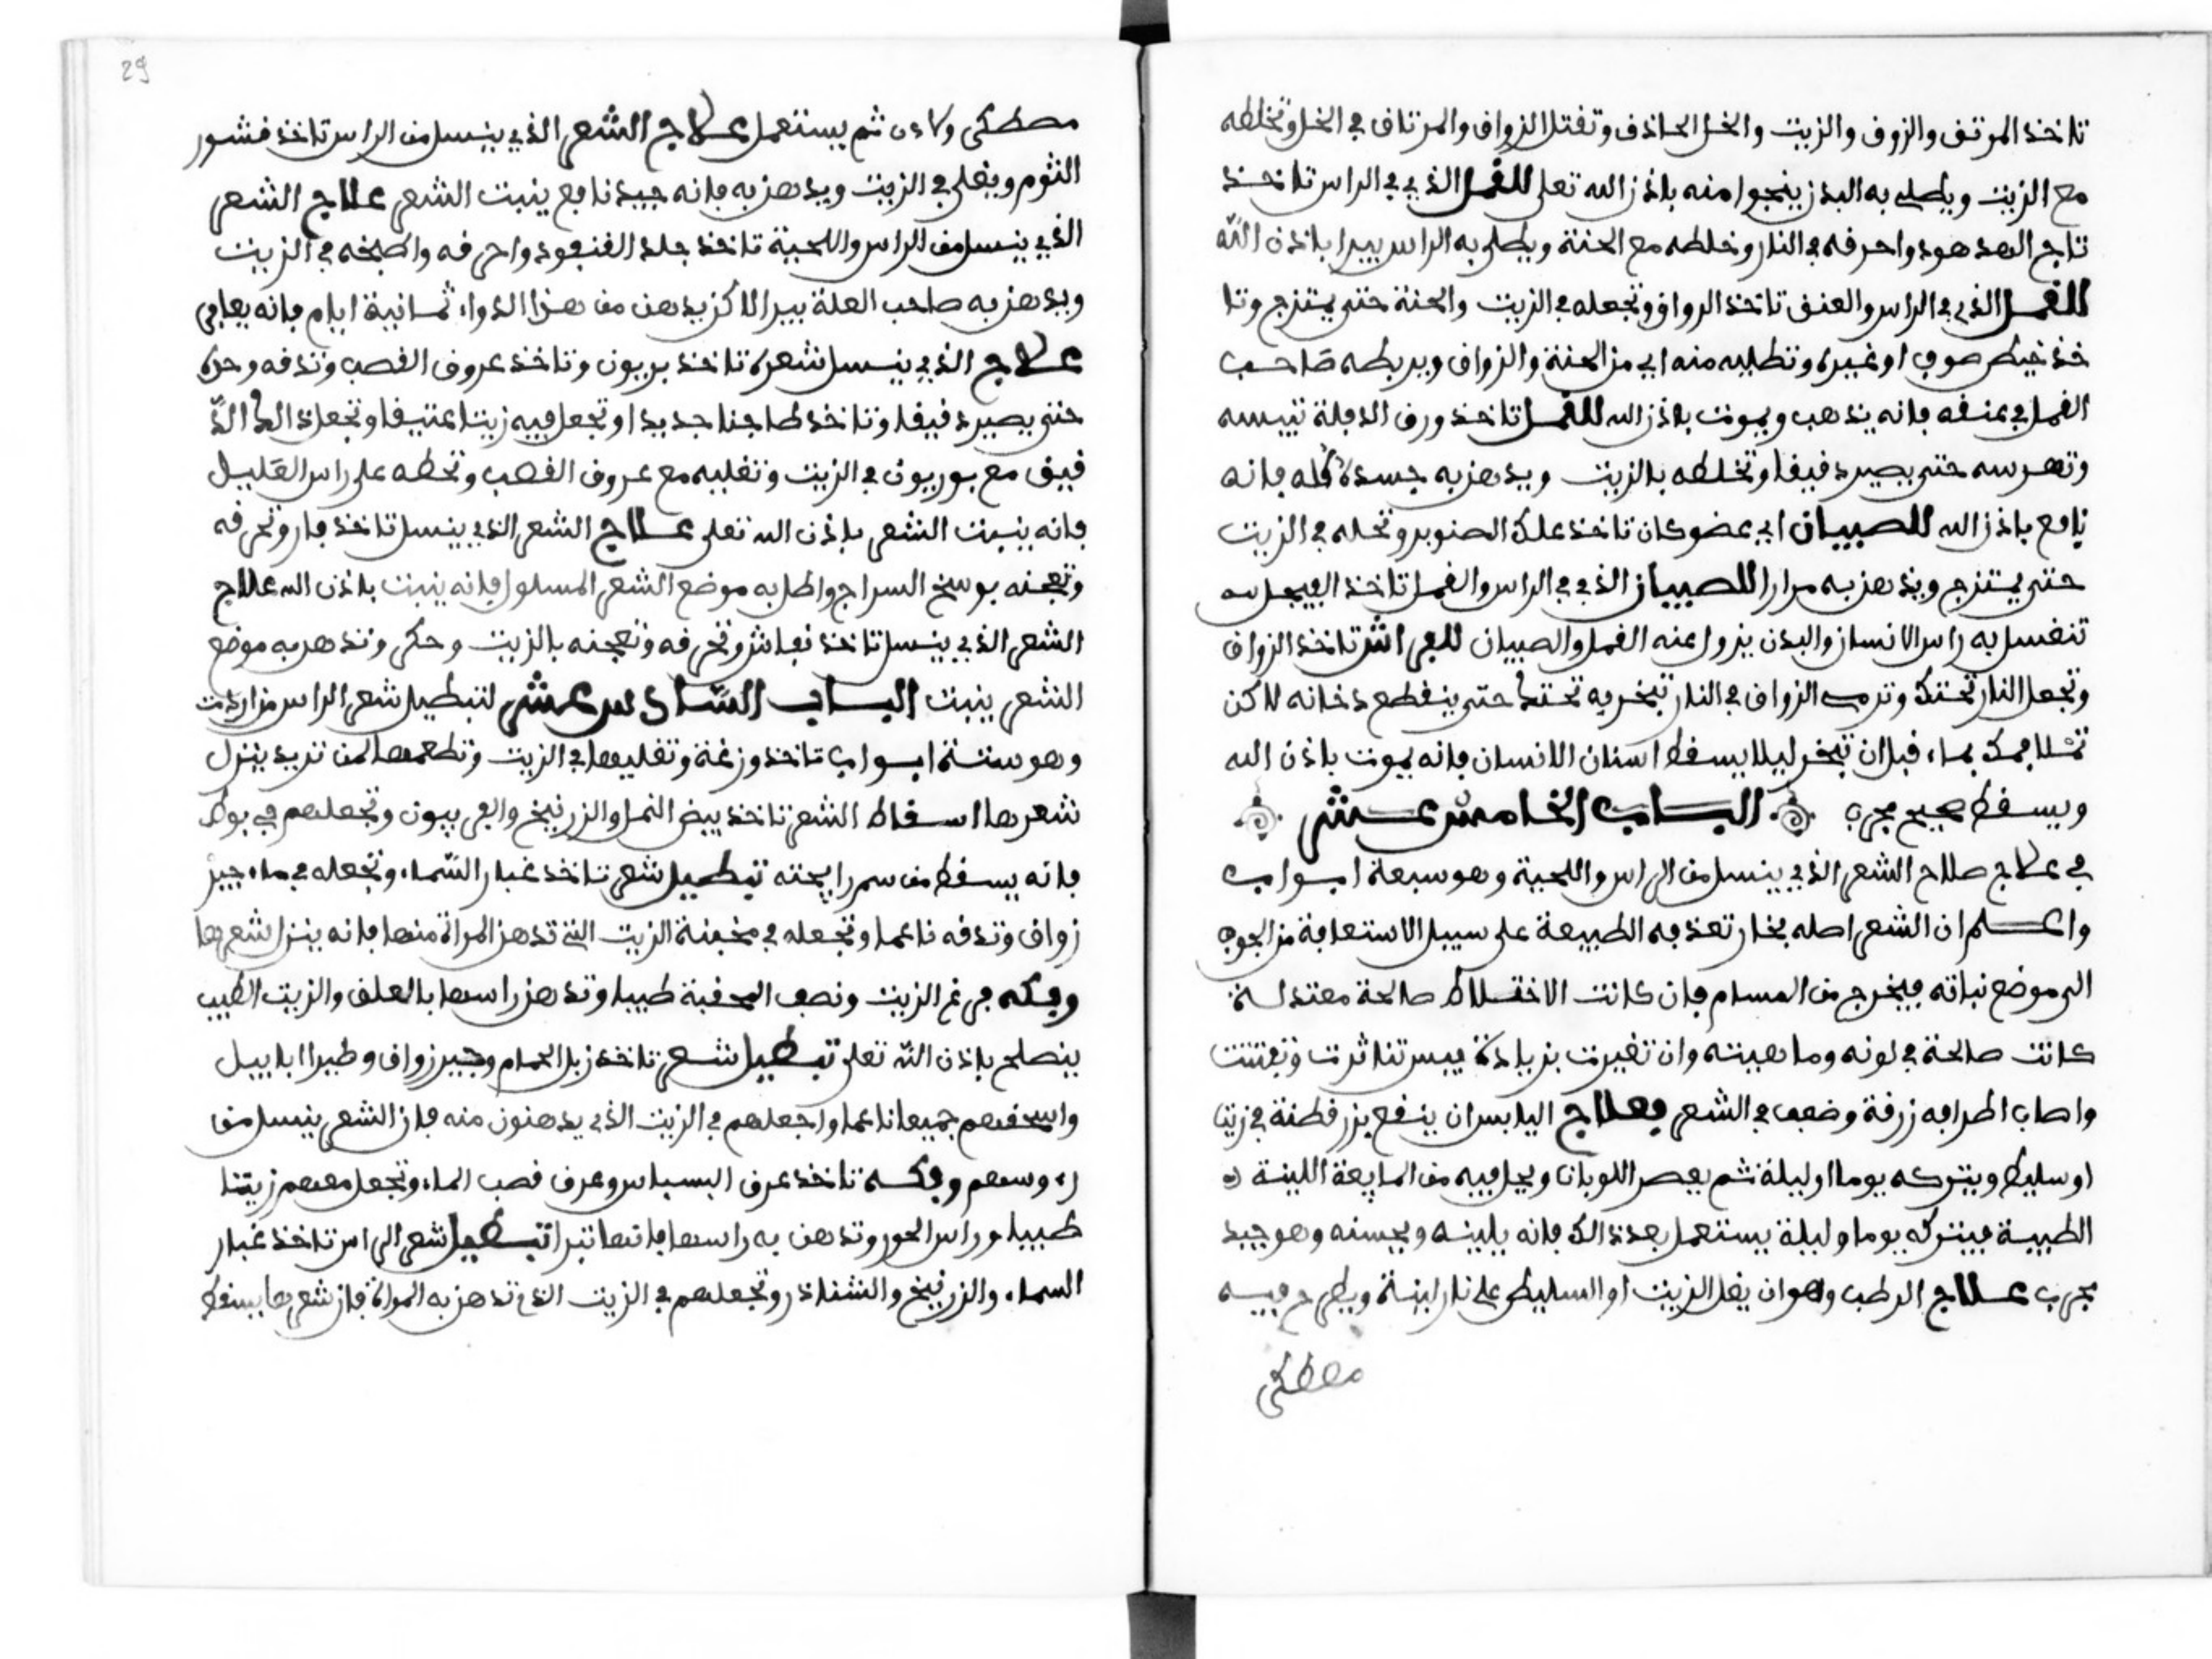 تاخذ المرتف والزوف والزيت والخل الحاذف وتفتل الزواف والمرتاف في الخل وتخلطه
مع الزيت ويطلى به البدن ينجوا منه باذن الله تعلى للقمل الذي في الراس تاخذ
تاج الهدهود واحرفه في النار وخلطه مع الحنة ويطلى به الراس يبرا باذن الله
للقمل الذي في الراس والعنق تاخذ الزواق وتجعله في الزيت والحنة حتى يمتزج وتا
خذ خيط صوف او غيره وتطليه منه اي من الحنة والزواق ويربطه صاحب
القمل في عنقه فانه يذهب ويموت باذن الله للقمل تاخذ ورق الدفلة تيبسه
وتهرسه حتى يصير دقيقا وتخلطه بالزيت ويدهن به جسده كله فانه
نافع باذن الله للصبيان اي عضو كان تاخذ علك الصنوبر وتحله في الزيت
حتى يمتزج ويدهن به مرارا للصبيان الذي في الراس والقمل تاخذ الفيجل
تغسل به راس الانسان والبدن يزول عنه القمل والصبيان للفراش تاخذ الزواق
وتجعل النار تحتك وترمي الزواق في النار تبخر به تحتك حتى ينقطع دخانه لاكن
تملا فمك بماء قبل ان تبخر ليلا يسقط اسنان الانسان فانه يموت باذن الله
ويسقط صحيح مجرب الباب الخامس عشر
في علاج صلاح الشعر الذي ينسل من الراس واللحية وهو سبعة ابواب
واعلم ان الشعر اصله بخار تعذفه الطبيعة على سبيل الاستعافة من الجوف
الى موضع نباته فيخرج من المسام فان كانت الاختلاط صالحة معتدلة
كانت صالحة في لونه وماهيته وان تغيرت بزيادة يبس تناثرت وتفتت
واصاب اطرافه زرقة وضعف في الشعر فعلاج اليابس ان ينقع بزر قطنة في زيت
او سليط ويتركه يوما او ليلة ثم يعصر اللوبان ويحل فيه من المايعة اللينة
الطيبة فيتركه يوما وليلة يستعمل بعد ذالك فانه يلينه ويحسنه وهو جيد
مجرب علاج الرطب وهو ان يغل الزيت او السليط على نار لينة ويطرح فيه
مصطكى
29
مصطكى ولاذن ثم يستعمل علاج الشعر الذي ينسل من الراس تاخذ قشور
الثوم ويغلى في الزيت ويدهن به فانه جيد نافع ينبت الشعر علاج الشعر
الذي ينسل من الراس واللحية تاخذ جلد القنفود واحرقه واطبخه في الزيت
ويدهن به صاحب العلة يبرا لاكن يدهن من هذا الدواء ثمانية ايام فانه يعافى
علاج الذي ينسل شعره تاخذ بربيون وتاخذ عروق القصب وتدقه وحده
حتى يصير دقيقا وتاخذ طاجنا جديدا وتجعل فيه زيتا عتيقا وتجعل ذالك الد
قيق مع بوربيون في الزيت وتغليه مع عروق القصب وتحطه على راس القليل
فانه ينبت الشعر باذن الله تعلى علاج الشعر الذي ينسل تاخذ فار وتحرقه
وتعجنه بوسخ السراج واطل به موضع الشعر المسلول فانه ينبت باذن الله علاج
الشعر الذي ينسل تاخذ نعاش وتحرقه وتعجنه بالزيت وحكى وتدهن به موضع
الشعر ينبت الباب السادس عشر لتبطيل شعر الراس من اردت
وهو ستة ابواب تاخذ وزغة وتغليها في الزيت وتطعمها لمن تريد ينزل
شعرها اسقاط الشعر تاخذ بيض النمل والزرنيخ والفربيون وتجعلهم في بوط
فانه يسقط من سم رايحته تبطيل شعر تاخذ غبار السماء وتجعله في ماء جير
زواق وتدقه ناعما وتجعله في مخبنة الزيت التي تدهن المراة منها فانه ينزل شعرها
وفكه في غم الزيت ونصف المحفية طيبا وتدهن راسها بالعلف والزيت الطيب
ينصلح باذن الله تعلى تبطيل شعر تاخذ زبل الحمام وجير زواق وطير ابابيل
واسحقهم جميعا ناعما واجعلهم في الزيت الذي يدهنون منه فان الشعر ينسل من
رءوسهم وفكه تاخذ عرق البسباس وعرق قصب الماء وتجعل معهم زيتا
طيبا وراس الحور وتدهن به راسها فانها تبرا تبطيل شعر الراس تاخذ غبار
السماء والزرنيخ والشناذر وتجعلهم في الزيت الذي تدهن به المراة فان شعرها يسقط